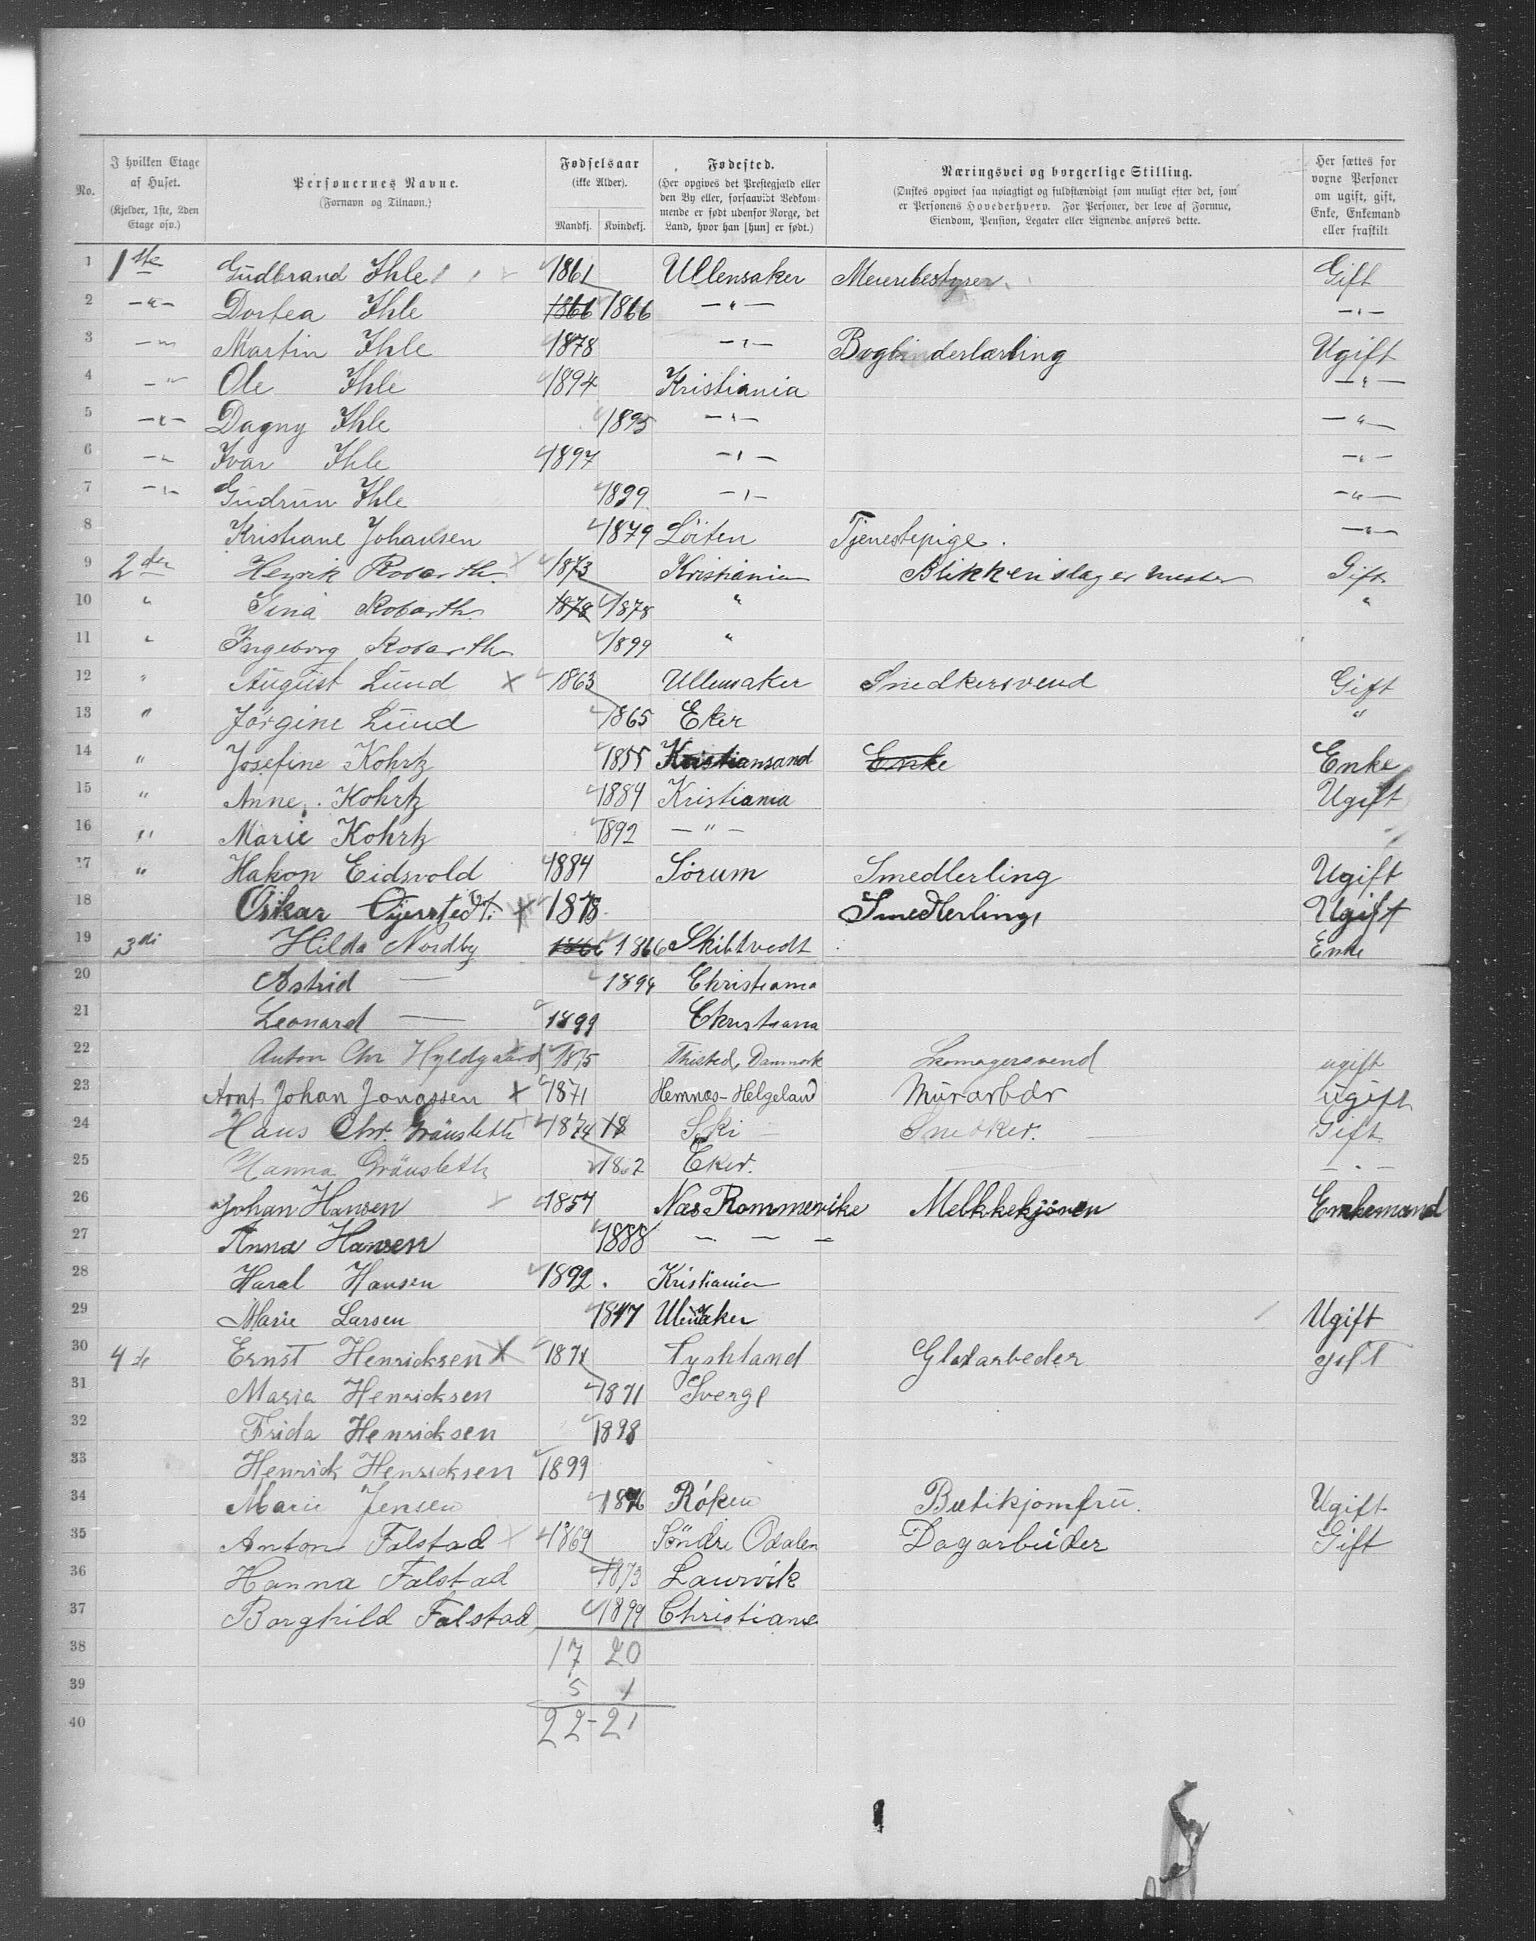 No. I hvilken Etage af Huset. (Kjelder, 1ste, 2den Etage osv.) Personernes Navne. (Fornavn og Tilnavn.) Fødselsaar (ikke Alder). Mandkj. Kvindekj. Fødested. (Her opgives det Prestegjæld eller den By eller, forsaavidt Vedkommende er født udenfor Norge, det Land, hvor han [hun] er født.) Næringsvei og borgerlige Stilling. (Ønskes opgivet saa nøiagtigt og fuldstændigt som muligt efter det, som er Personens Hovederhverv. For Personer, der leve af Formue, Eiendom, Pension, Legater eller Lignende anføres dette. Her sættes for voxne Personer om ugift, gift, Enke, Enkemand eller fraskilt
1 1ste Gudbrand Ihle 1861 Ullensaker Meieribestyrer Gift
2 —"— Dortea Ihle 1866 1866 —"— —"—
3 —"— Martin Ihle 1878 —"— Bogbinderlærling Ugift
4 —"— Ole Ihle 1894 Kristiania —"—
5 —"— Dagny Ihle 1895 —"— —"—
6 —"— Ivar Ihle 1897 —"— —"—
7 —"— Gudrun Ihle 1899 —"— —"—
8 Kristiane Johansen 1879 Löiten Tjenestepige. —"—
9 2den Henrik Robarth. 1873 Kristiania Blikkenslagermester Gift
10 " Gina Robarth. 1878 1878 " "
11 " Ingeborg Robarth 1899 "
12 " August Lund 1863 Ullensaker Snedkersvend Gift
13 " Jörgine Lund 1865 Eker "
14 " Josefine Kohrtz 1855 Kristiansand Enke Enke
15 " Anne Kohrtz 1884 Kristiania Ugift
16 " Marie Kohrtz 1892 —"— "
17 " Hakon Eidsvold 1884 Sörum Smedlerling Ugift
18 Oskar 1878 Smedlerling Ugift
19 3di Hilda Nordby 1866 1866 Skibtvedt Enke
20 Astrid — 1894 Christiania
21 Leonard — 1899 Christiania
22 Anton Chr Hyldgaard 1875 Thisted, Danmark Skomagersvend ugift
23 Arnt Johan Jonassen 1871 Hemnæs-Helgeland Murarbdr ugift
24 Hans Chr. Gräusleth 1874 18 Ski Snedker. Gift
25 Hanna Gräusleth 1862 Eker. —"—
26 Johan Hansen 1857 Næs Rommerike Melkkekjören Enkemand
27 Anna Hansen 1888 — — —
28 Haral Hansen 1892 Kristiania
29 Marie Larsen 1847 Ulensaker Ugift
30 4de Ernst Henricksen 1871 Tyshland Glasarbeder gift
31 Maria Henricksen 1871 Sverge
32 Frida Henricksen 1898
33 Henrick Henricksen 1899
34 Marie Jensen 1876 Röken Butikjomfru. Ugift
35 Anton Falstad 1869 Söndre Odalen Dagarbeider Gift
36 Hanna Falstad 1873 Laurvik
37 Borghild Falstad 1899 Christiania
38 17 20
39 5 1
40 22-21